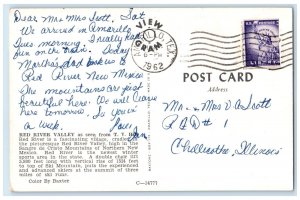 Dear Mr. Miss Scott, Sat
We arrived in Amarillo
this morning. I really had
fun on the train. Today
Martha's dad took us to
Red River New Mexico
The mountains are just
beautiful here. We will leave
here tomorrow. See you in
a week.
VIEW
GRAM
1962
POST CARD
Address
Mr. & Mrs V A Scott
R R # 1
Chillicothe, Illinois
RED RIVER VALLEY as seen from T. V. Hill
Red River is a fascinating village, nestled in
the picturesque Red River Valley, high in the
Sangre de Cristo Mountains of Northern New
Mexico. Red River is the newest winter
sports area in the state. A double chair lift
3,300 feet long with vertical rise of 1534 feet
to top of the 3 mile ski run serves intermediate
and advanced skiers at the summit of three
miles of ski runs.
Color By Baxter
C—16771